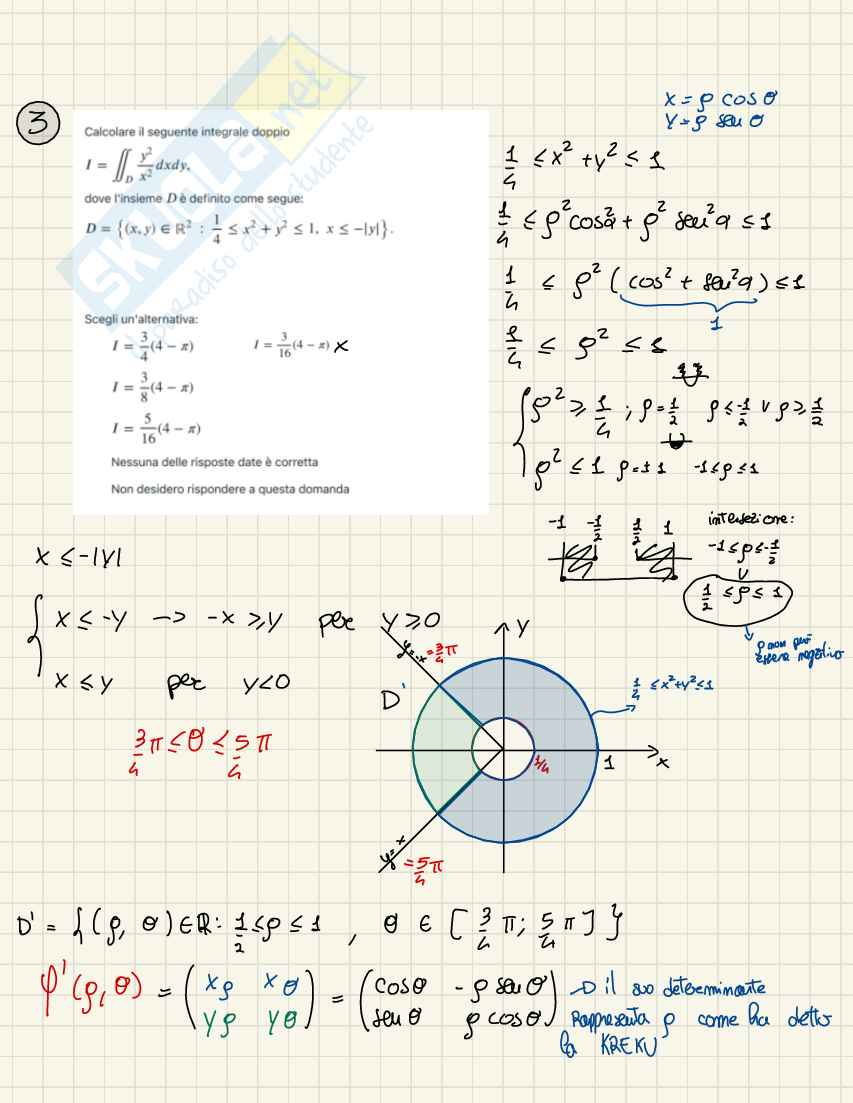 3
SKUOLA.net
il paradiso dello studente
Calcolare il seguente integrale doppio
I = ∬_D y²/x² dxdy,
dove l'insieme D è definito come segue:
D = {(x, y) ∈ ℝ² : 1/4 ≤ x² + y² ≤ 1, x ≤ −|y|}.
Scegli un'alternativa:
I = 3/4(4 − π)
I = 3/16(4 − π) x
I = 3/8(4 − π)
I = 5/16(4 − π)
Nessuna delle risposte date è corretta
Non desidero rispondere a questa domanda
x = ρ cos θ
y = ρ sen θ
1/4 ≤ x² + y² ≤ 1
1/4 ≤ ρ² cos²θ + ρ² sen²θ ≤ 1
1/4 ≤ ρ² (cos² + sen²θ) ≤ 1
1
1/4 ≤ ρ² ≤ 1
ρ² ≥ 1/4 ; ρ = 1/2 ρ ≤ -1/2 ∨ ρ ≥ 1/2
ρ² ≤ 1 ρ = ± 1 -1 ≤ ρ ≤ 1
-1 -1/2 1/2 1
intersezione:
-1 ≤ ρ ≤ -1/2
∨
1/2 ≤ ρ ≤ 1
ρ non può
essere negativo
x ≤ -|y|
x ≤ -y -> -x ≥ y per y ≥ 0
x ≤ y per y < 0
3/4 π ≤ θ ≤ 5/4 π
y
y=-x = 3/4 π
D'
1/4 ≤ x²+y² ≤ 1
1/4
1
x
y=x
= 5/4 π
D' = {(ρ, θ) ∈ ℝ : 1/2 ≤ ρ ≤ 1 , θ ∈ [3/4 π; 5/4 π]}
φ'(ρ, θ) = (xρ xθ
yρ yθ) = (cos θ - ρ sen θ
sen θ ρ cos θ) → il suo determinante
Rappresenta ρ come ha detto
la KREKU